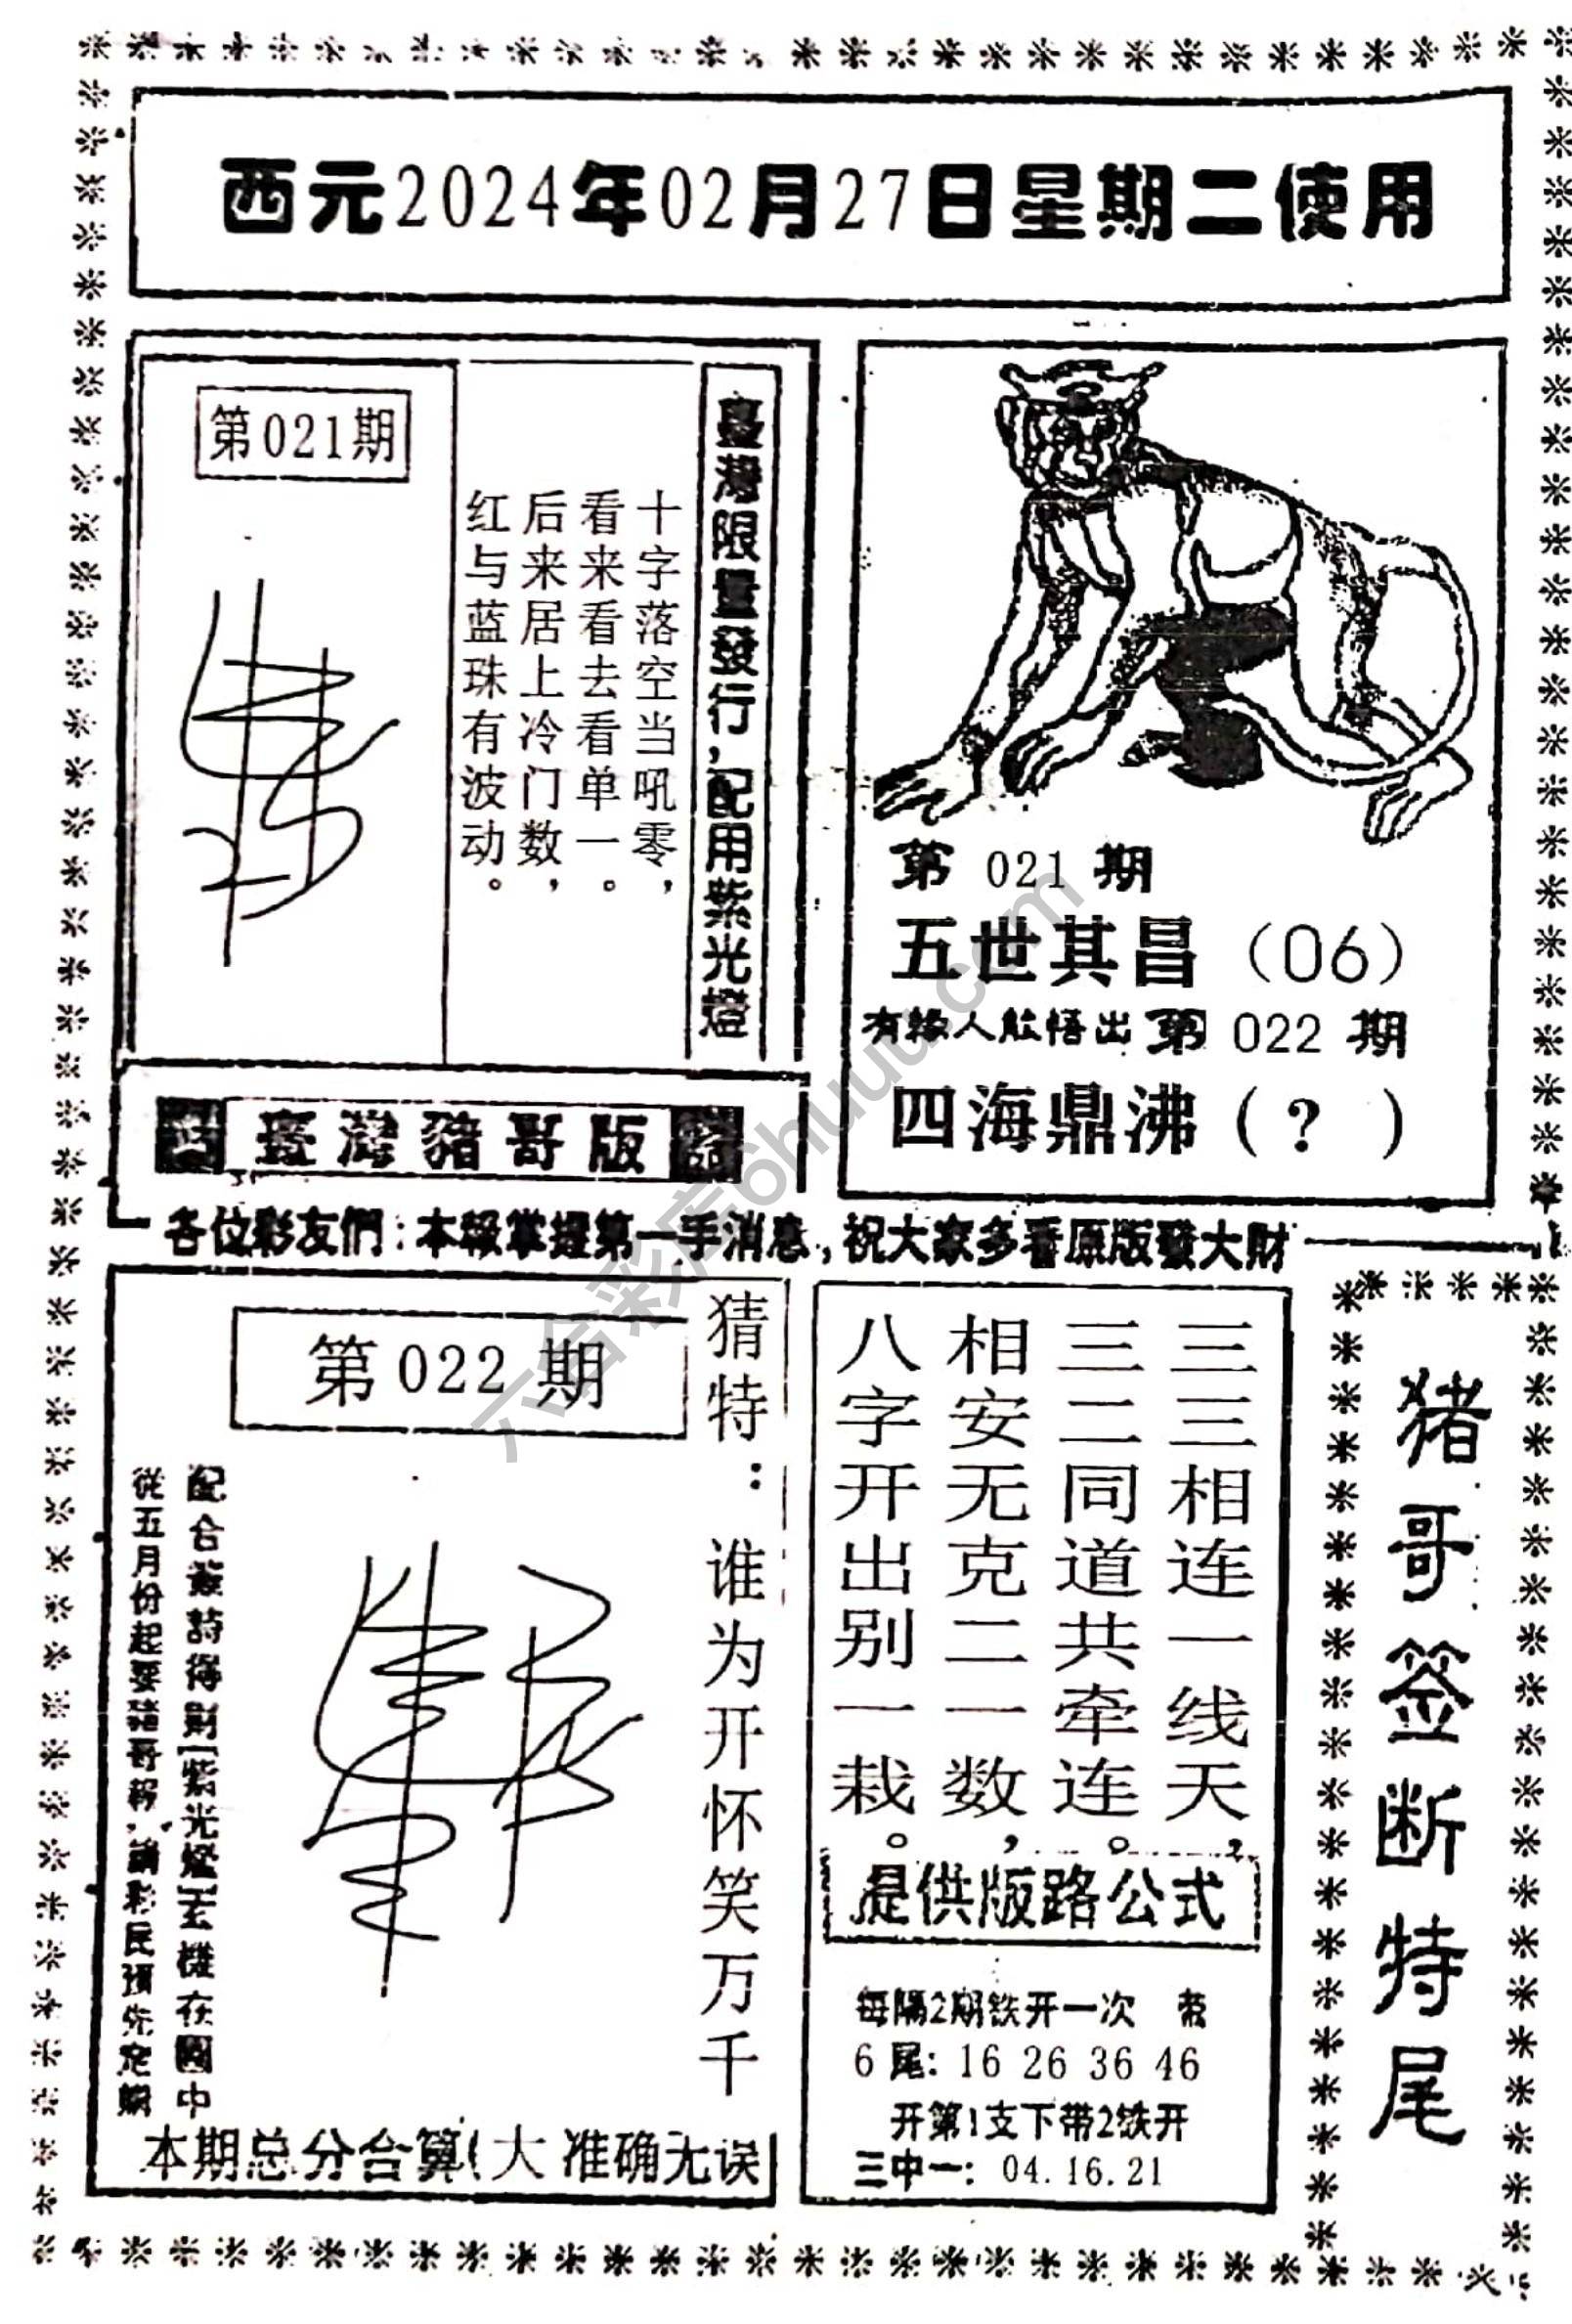 西元2024年02月27日星期二使用
第021期
臺灣限量發行,配用紫光燈
十字落空当吼零,
看来看去看单一。
后来居上冷门数,
红与蓝珠有波动。
臺灣豬哥版
第 021 期
五世其昌（06）
有緣人能悟出 第 022 期
四海鼎沸（?）
各位彩友們:本報掌握第一手消息,祝大家多看原版發大財
第 022 期
猜特:谁为开怀笑万千
配合簽詩得財[紫光燈]玄機在圖中
從五月份起要豬哥報,請彩民預先定購
本期总分合算(大 准确无误
三三相连一线天,
三二同道共牵连。
相安无克二一数,
八字开出别一栽。
提供版路公式
每隔2期铁开一次
6尾:16 26 36 46
开第1支下带2铁开
三中一: 04.16.21
猪哥签断特尾
六合彩库6huuu.com